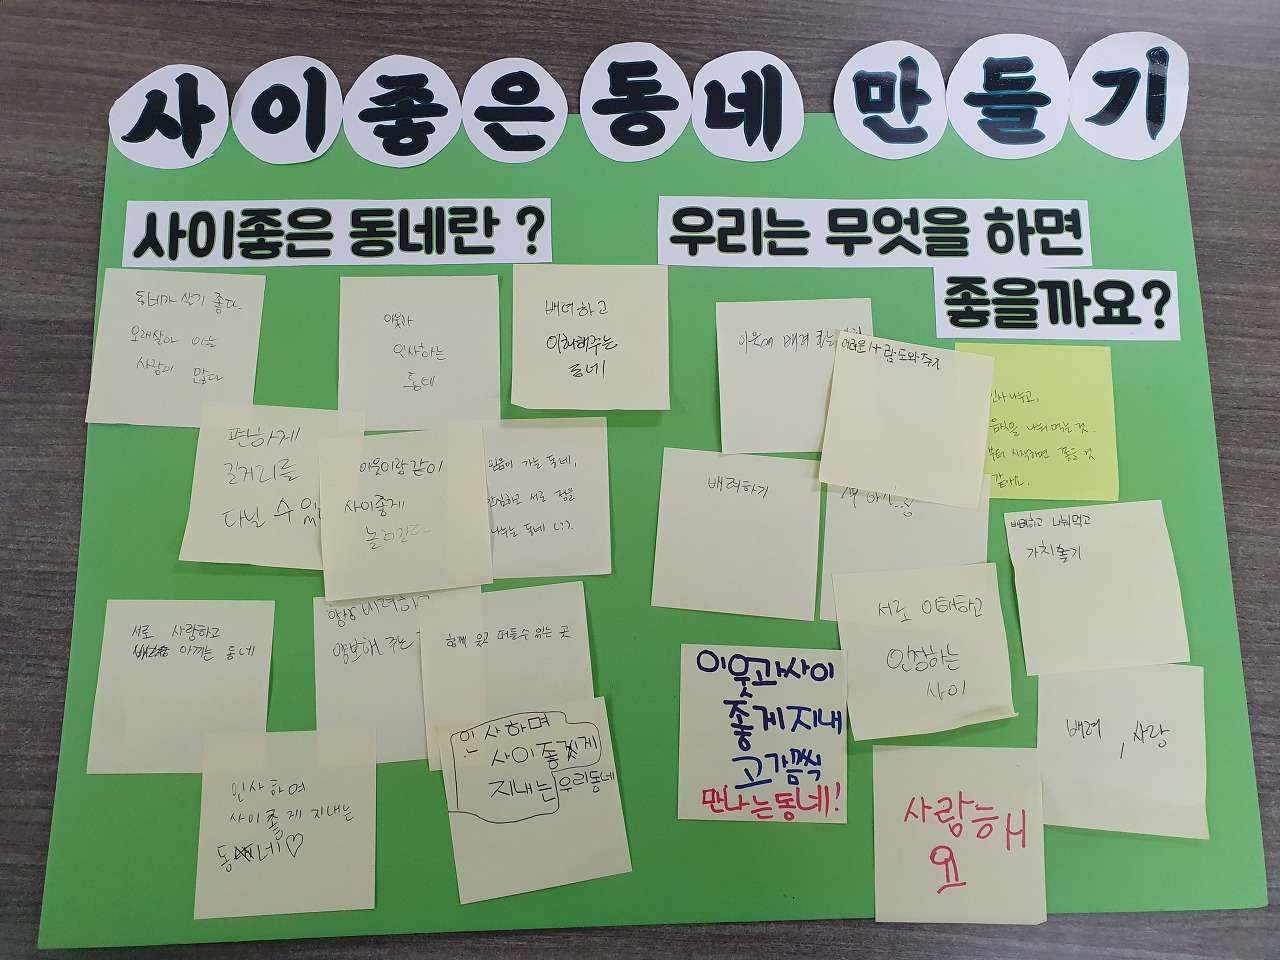 사이좋은동네 만들기
사이좋은 동네란 ?
동네가 살기 좋다.
오래살아 있는
사람이 많다
이웃과
인사하는
동네
배려하고
이해해주는
동네
편하게
길거리를
다닐 수 있
이웃이랑 같이
사이좋게
놀러간다
믿음이 가는 동네,
안심하고 서로 정을
나누는 동네 (?).
서로 사랑하고
아끼는 동네
항상 배려하고
양보해 주는
함께 웃고 떠들수 있는 곳
인사하며
사이좋게 지내는
동네♡
인사하면
사이좋게
지내는 우리동네
우리는 무엇을 하면
좋을까요?
이웃에 배려
어려운 사람 도와주기
인사 나누고,
음식을 나눠 먹는 것.
부터 시작하면 좋을 것
같아요.
배려하기
배려하고 나눠먹고
가치놀기
서로 이해하고
인정하는
사이
이웃과사이
좋게지내
고가끔씩
만나는동네!
배려, 사랑
사람능해
요